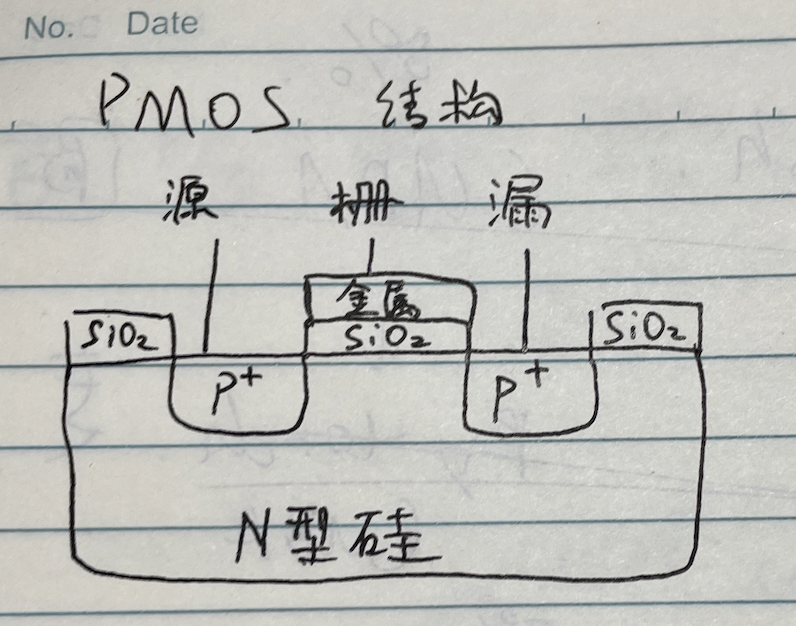 No. Date
PMOS 结构
源 栅 漏
金属
SiO₂ SiO₂ SiO₂
P⁺ P⁺
N型硅